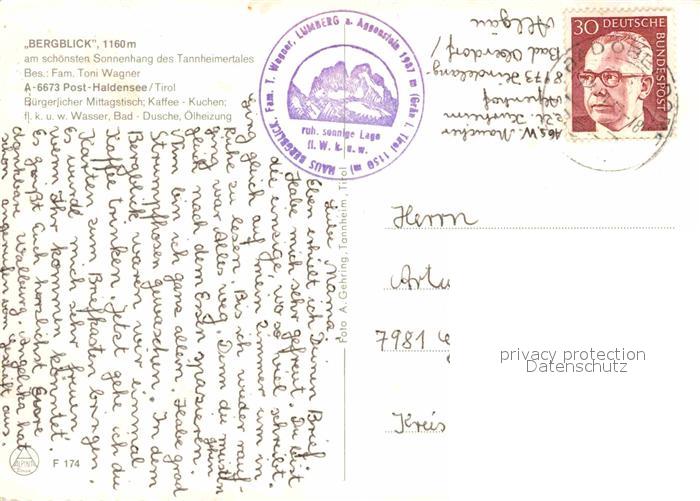 „BERGBLICK", 1160m
am schönsten Sonnenhang des Tannheimertales
Bes.: Fam. Toni Wagner
A-6673 Post-Haldensee/Tirol
Bürgerlicher Mittagstisch; Kaffee - Kuchen;
fl. k. u. w. Wasser, Bad - Dusche, Ölheizung
HAUS BERGBLICK, Fam. T. Wagner, LUMBERG a. Aggenstein 1987 m (Grän i. Tirol 1150 m)
ruh. sonnige Lage
fl. W. k. u. w.
Abs. W.
Kurheim
8973 Hindelang-
Bad Oberdorf/
Allgäu
30 DEUTSCHE
BUNDESPOST
Liebe Mama!
Eben erhielt ich Deinen Brief.
Habe mich sehr gefreut. Du bist
die einzige, wo so viel schreibt.
ging gleich auf mein Zimmer um in
Ruhe zu lesen. Bis ich wieder rauf-
ging war alles weg. Denn die meisten gehen
gleich nach dem Essen spazieren.
Nun bin ich ganz allein. Habe grad
Strumpfhosen gewaschen. In dem
Bergblick waren wir einmal
Kaffee trinken. Jetzt gehe ich du
Karten zum Briefkasten bringen
Es würd mich sehr freuen
wenn Ihr kommen könntet.
Es grüßt Euch herzlichst Eure
dankbare Walburg. Angelika hat
schon angerufen vom Geschäft aus.
Foto A. Gehring, Tannheim, Tirol
Herrn
Artu
7981
Kreis
privacy protection
Datenschutz
ALPINA
F 174